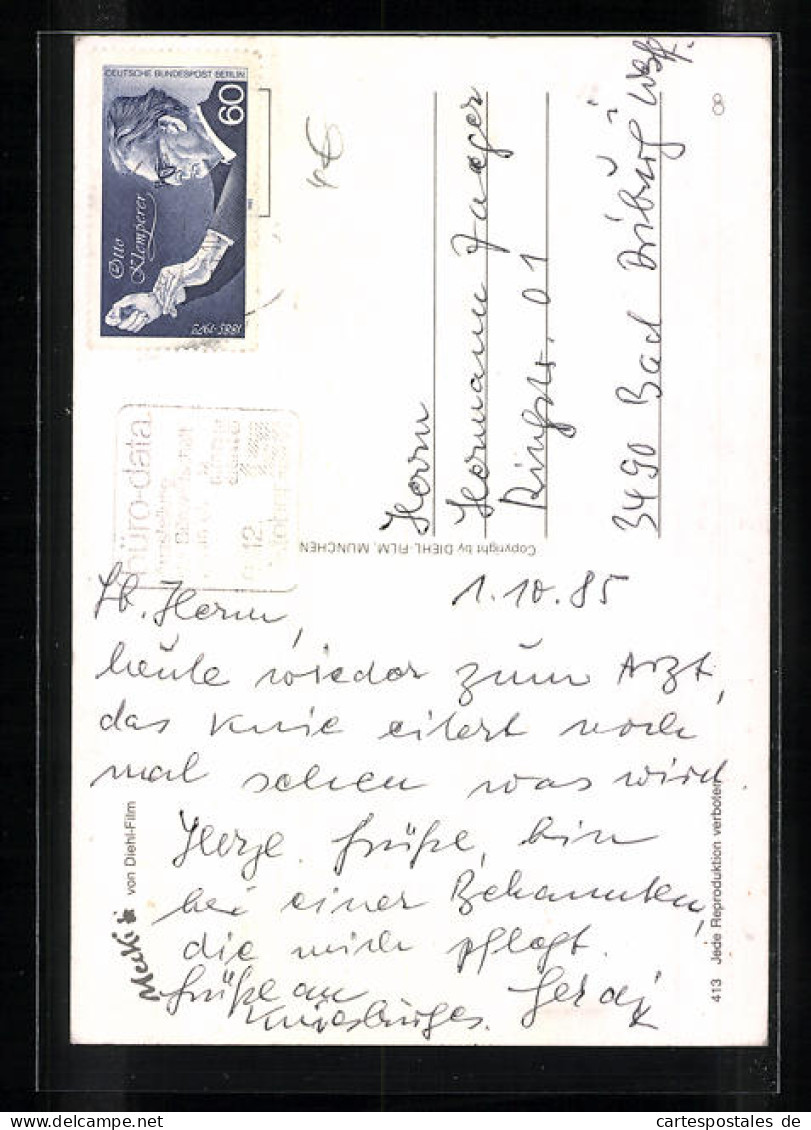 DEUTSCHE BUNDESPOST BERLIN
60
Otto
Klemperer
1885-1973
4€
8
büro-data
12.
Herrn
Hermann Jaeger
Ringstr. 01
3490 Bad Driburg Wstf.
Copyright by DIEHL-FILM, MÜNCHEN
1.10.85
Lb. Herm,
heute wieder zum Arzt,
das Knie eitert noch
mal sehen was wird.
Herzl. Grüße, bin
bei einer Bekannten,
die mich pflegt.
Grüße an
Gerd
Mecki
von Diehl-Film
413 Jede Reproduktion verboten
delcampe.net
cartespostales de